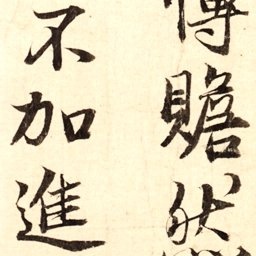 博贍然
不加進